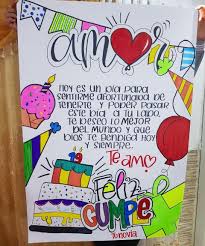 amor
HOY ES UN DIA PARA
SENTIRME AFORTUNADA DE
TENERTE Y PODER PASAR
ESTE DIA A TU LADO,
TE DESEO LO MEJOR
DEL MUNDO Y QUE
DIOS TE BENDIGA HOY
Y SIEMPRE.
Te amo
19
Feliz
CUMPE
Tu novia